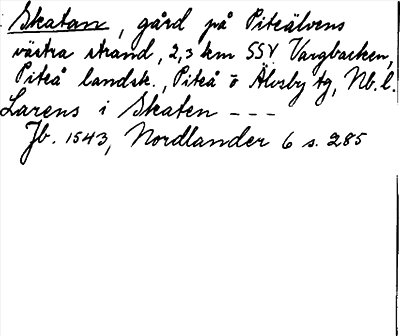 Skatan, gård på Piteälvens
västra strand, 2,3 km SSV Vargbacken,
Piteå landsk., Piteå o Älvsby tg, Nb. l.
Larens i Skaten - - -
Jb. 1543, Nordlander 6 s. 285